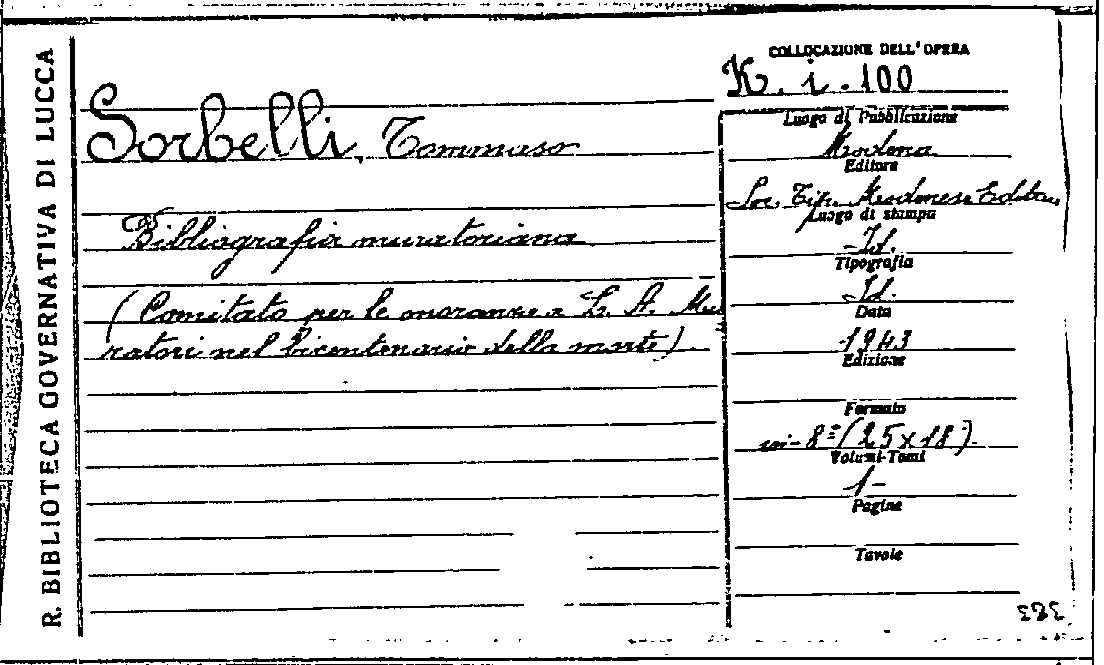 R. BIBLIOTECA GOVERNATIVA DI LUCCA
COLLOCAZIONE DELL'OPERA
K. i. 100
Sorbelli, Tommaso
Bibliografia muratoriana
(Comitato per le onoranze a L. A. Mu
ratori nel bicentenario della morte)
Luogo di Pubblicazione
Modena
Editore
Soc. Tip. Modenese Editr.
Luogo di stampa
Id.
Tipografia
Id.
Data
1943
Edizione
Formato
in-8º (25x18)
Volumi-Tomi
1-
Pagine
Tavole